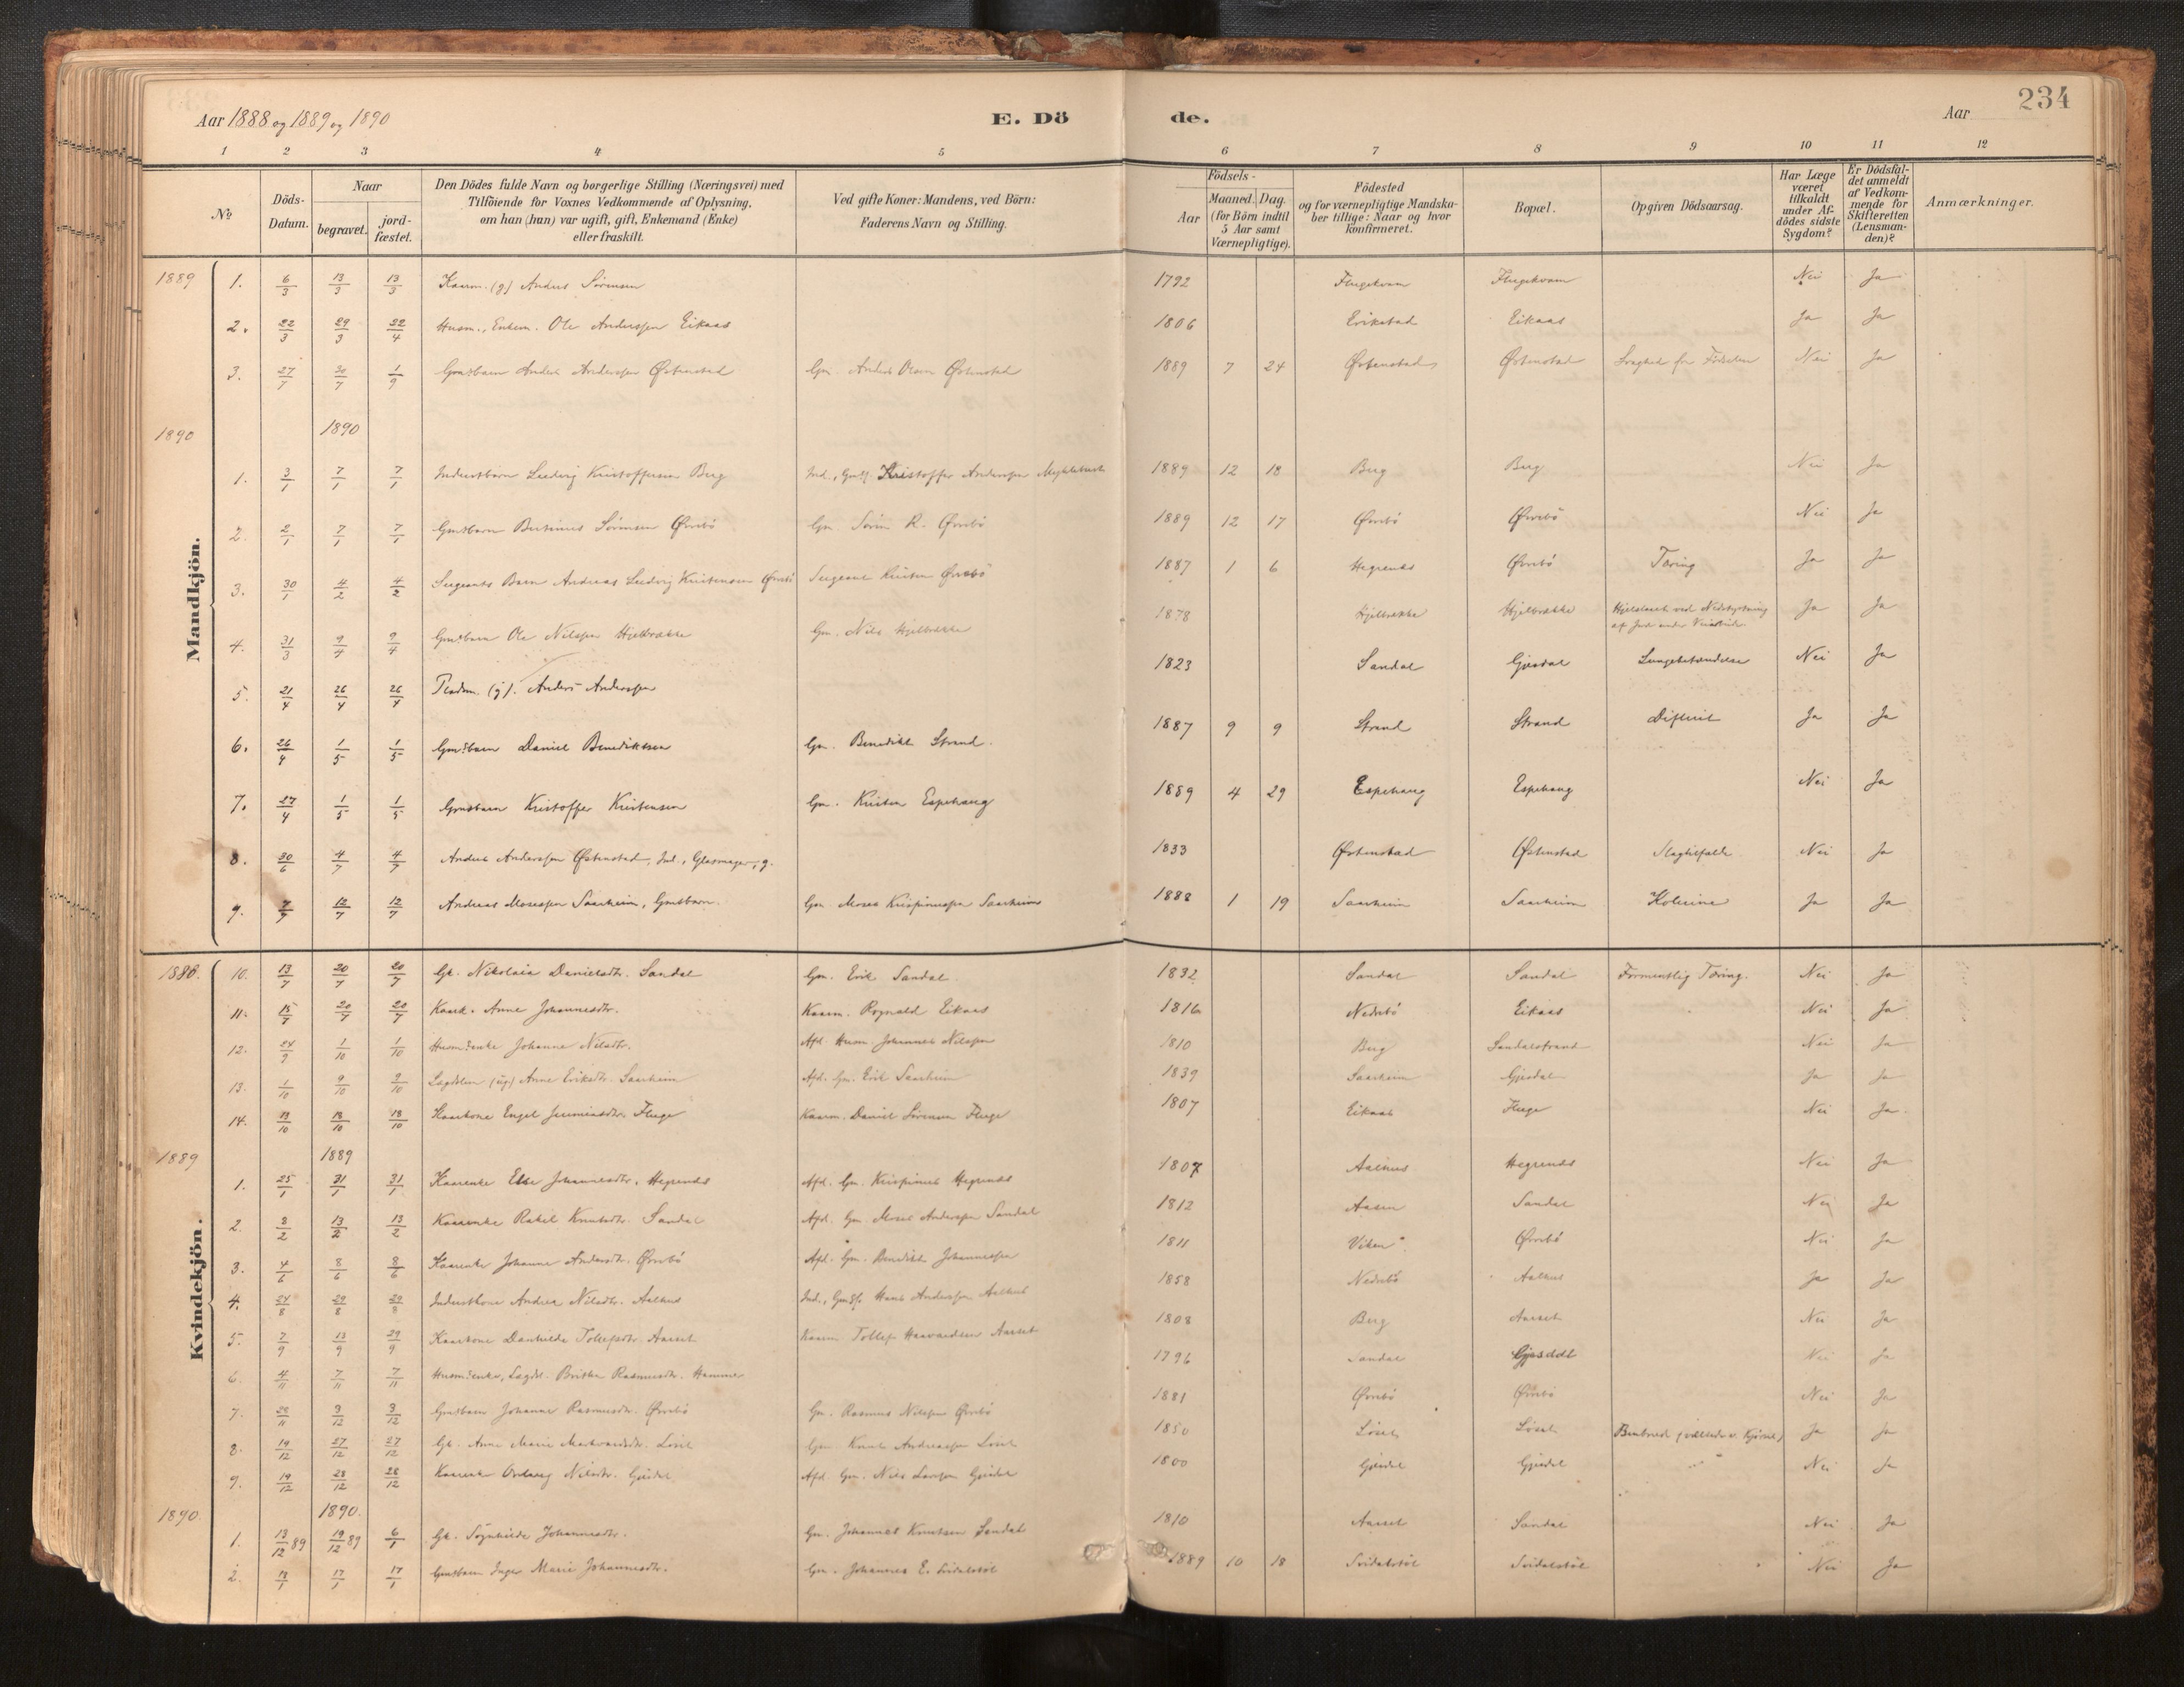 234
Aar 1888 og 1889 og 1890 E. Dö de. Aar
1 2 3 4 5 6 7 8 9 10 11 12
No Döds-Datum. Naar begravet. jordfæstet. Den Dödes fulde Navn og borgerlige Stilling (Næringsvei) med Tilföiende for Voxnes Vedkommende af Oplysning, om han (hun) var ugift, gift, Enkemand (Enke) eller fraskilt. Ved gifte Koner: Mandens, ved Börn: Faderens Navn og Stilling. Födsels- Aar Maaned. Dag. (for Börn indtil 5 Aar samt Værnepligtige). Födested og for værnepligtige Mandskaber tillige: Naar og hvor konfirmeret. Bopæl. Opgiven Dödsaarsag. Har Læge været tilkaldt under Afdödes sidste Sygdom? Er Dödsfaldet anmeldt af Vedkommende for Skifteretten (Lensmanden)? Anmærkninger.
Mandkjön.
1889 1. 6/3 13/3 13/3 Kaarm. (g) Anders Sörensen 1792 Flugekvam Flugekvam Nei Ja
2. 22/3 29/3 22/4 Husm., Enkem. Ole Anderssen Eikaas 1806 Erikstad Eikaas Ja Ja
3. 27/7 30/7 1/9 Gmdsbarn Anders Anderssen Østenstad Gm. Anders Olsen Østenstad 1889 7 24 Østenstad Østenstad Svaghed fra Födselen Nei Ja
1890 1890
1. 3/1 7/1 7/1 Inderstbarn Ludvig Kristoffersen Berg Ind., Gmds. Kristoffer Anderssen Myklebust 1889 12 18 Berg Berg Nei Ja
2. 2/1 7/1 7/1 Gmdsbarn Bertinius Sörensen Øvrebö Gm. Sören R. Øvrebö 1889 12 17 Øvrebö Øvrebö Nei Ja
3. 30/1 4/2 4/2 Sergeants Barn Andreas Ludvig Kristensen Øvrebö Sergeant Kristen Øvrebö 1887 1 6 Hegrenæs Øvrebö Tæring Ja Ja
4. 31/3 9/4 9/4 Gmdsbarn Ole Nilssen Hjelbrekke Gm. Nils Hjelbrekke 1878 Hjelbrekke Hjelbrekke ved Nedstyrtning af Jord under Veiarbeide Ja Ja
5. 21/4 26/4 26/4 (g). Anders Anderssen 1823 Sandal Gjesdal Lungebetændelse Nei Ja
6. 26/4 1/5 1/5 Gmdsbarn Daniel Benediktsen Gm. Benedikt Strand. 1887 9 9 Strand Strand Difterit Ja Ja
7. 27/4 1/5 1/5 Gmdsbarn Kristoffer Kristensen Gm. Kristen Espehaug 1889 4 29 Espehaug Espehaug Nei Ja
8. 30/6 4/7 4/7 Anders Anderssen Østenstad, Ind., Glasmager, g. 1833 Østenstad Østenstad Slagtilfælde Nei Ja
9. 7/7 12/7 12/7 Andreas Mosessen Saarheim, Gmdsbarn. Gm. Moses Krispinussen Saarheim 1888 1 19 Saarheim Saarheim Kolerine Ja Ja
Kvindekjön.
1888. 10. 13/7 20/7 20/7 Gk. Nikolaia Danielsdtr. Sandal Gm. Erik Sandal 1832 Sandal Sandal Formentlig Tæring. Nei Ja
11. 15/7 20/7 20/7 Kaark. Anne Johannesdtr. Kaarm. Rognald Eikaas 1816 Nedrebö Eikaas Nei Ja
12. 24/9 1/10 1/10 Husm.enke Johanne Nilsdtr. Afd. Husm. Johannes Nilssen 1810 Berg Sandalstrand Nei Ja
13. 1/10 9/10 9/10 Lægdslem (ug) Anne Eriksdtr. Saarheim Afd. Gm. Erik Saarheim 1839 Saarheim Gjesdal Ja Ja
14. 13/10 18/10 18/10 Kaarkone Engel Jeremiasdtr. Fluge Kaarm. Daniel Sörensen Fluge 1807 Eikaas Fluge Nei Ja.
1889 1889
1. 25/1 31/1 31/1 Kaarenke Else Johannesdtr. Hegrenæs Afd. Gm. Krispinus Hegrenæs 1807 Aalhus Hegrenæs Nei Ja
2. 8/2 13/2 13/2 Kaarenke Rakel Knutsdtr. Sandal Afd. Gm. Moses Anderssen Sandal 1812 Aasen Sandal Nei Ja
3. 4/6 8/6 8/6 Kaarenke Johanne Andersdtr. Øvrebö Afd. Gm. Benedikt Johannessen 1811 Viken Øvrebö Nei Ja
4. 24/8 29/8 29/8 Inderstkone Andrea Nilsdtr. Aalhus Ind., Gmds. Hans Anderssen Aalhus 1858 Nedrebö Aalhus Ja Ja
5. 7/9 13/9 29/9 Kaarkone Danhilde Tollefsdtr. Aarset Kaarm. Tollef Haavardsen Aarset 1808 Berg Aarset Nei Ja
6. 4/11 7/11 7/11 Husm.enke, Lægdsl. Brithe Rasmusdtr. Hammer 1796 Sandal Gjesdal Nei Ja
7. 28/11 3/12 3/12 Gmdsbarn Johanne Rasmusdtr. Øvrebö Gm. Rasmus Nilssen Øvrebö 1881 Øvrebö Øvrebö Nei Ja
8. 19/12 27/12 27/12 Gk. Anne Marie Markvardsdtr. Löset Gm. Knut Andreassen Löset 1850 Löset Löset Benbrud Ja Ja
9. 19/12 28/12 28/12 Kaarenke Nilsdtr. Gjesdal Afd. Gm. Nils Larssen Gjesdal 1800 Gjesdal Gjesdal Nei Ja
1890 1890.
1. 13/12 89 19/12 89 6/1 Gk. Johannesdtr. Gm. Johannes Knutsen Sandal 1810 Aarset Sandal Nei Ja
2. 13/1 17/1 17/1 Gmdsbarn Inger Marie Johannesdtr. Gm. Johannes E. Svidalstöl 1889 10 18 Svidalstöl Svidalstöl Nei Ja